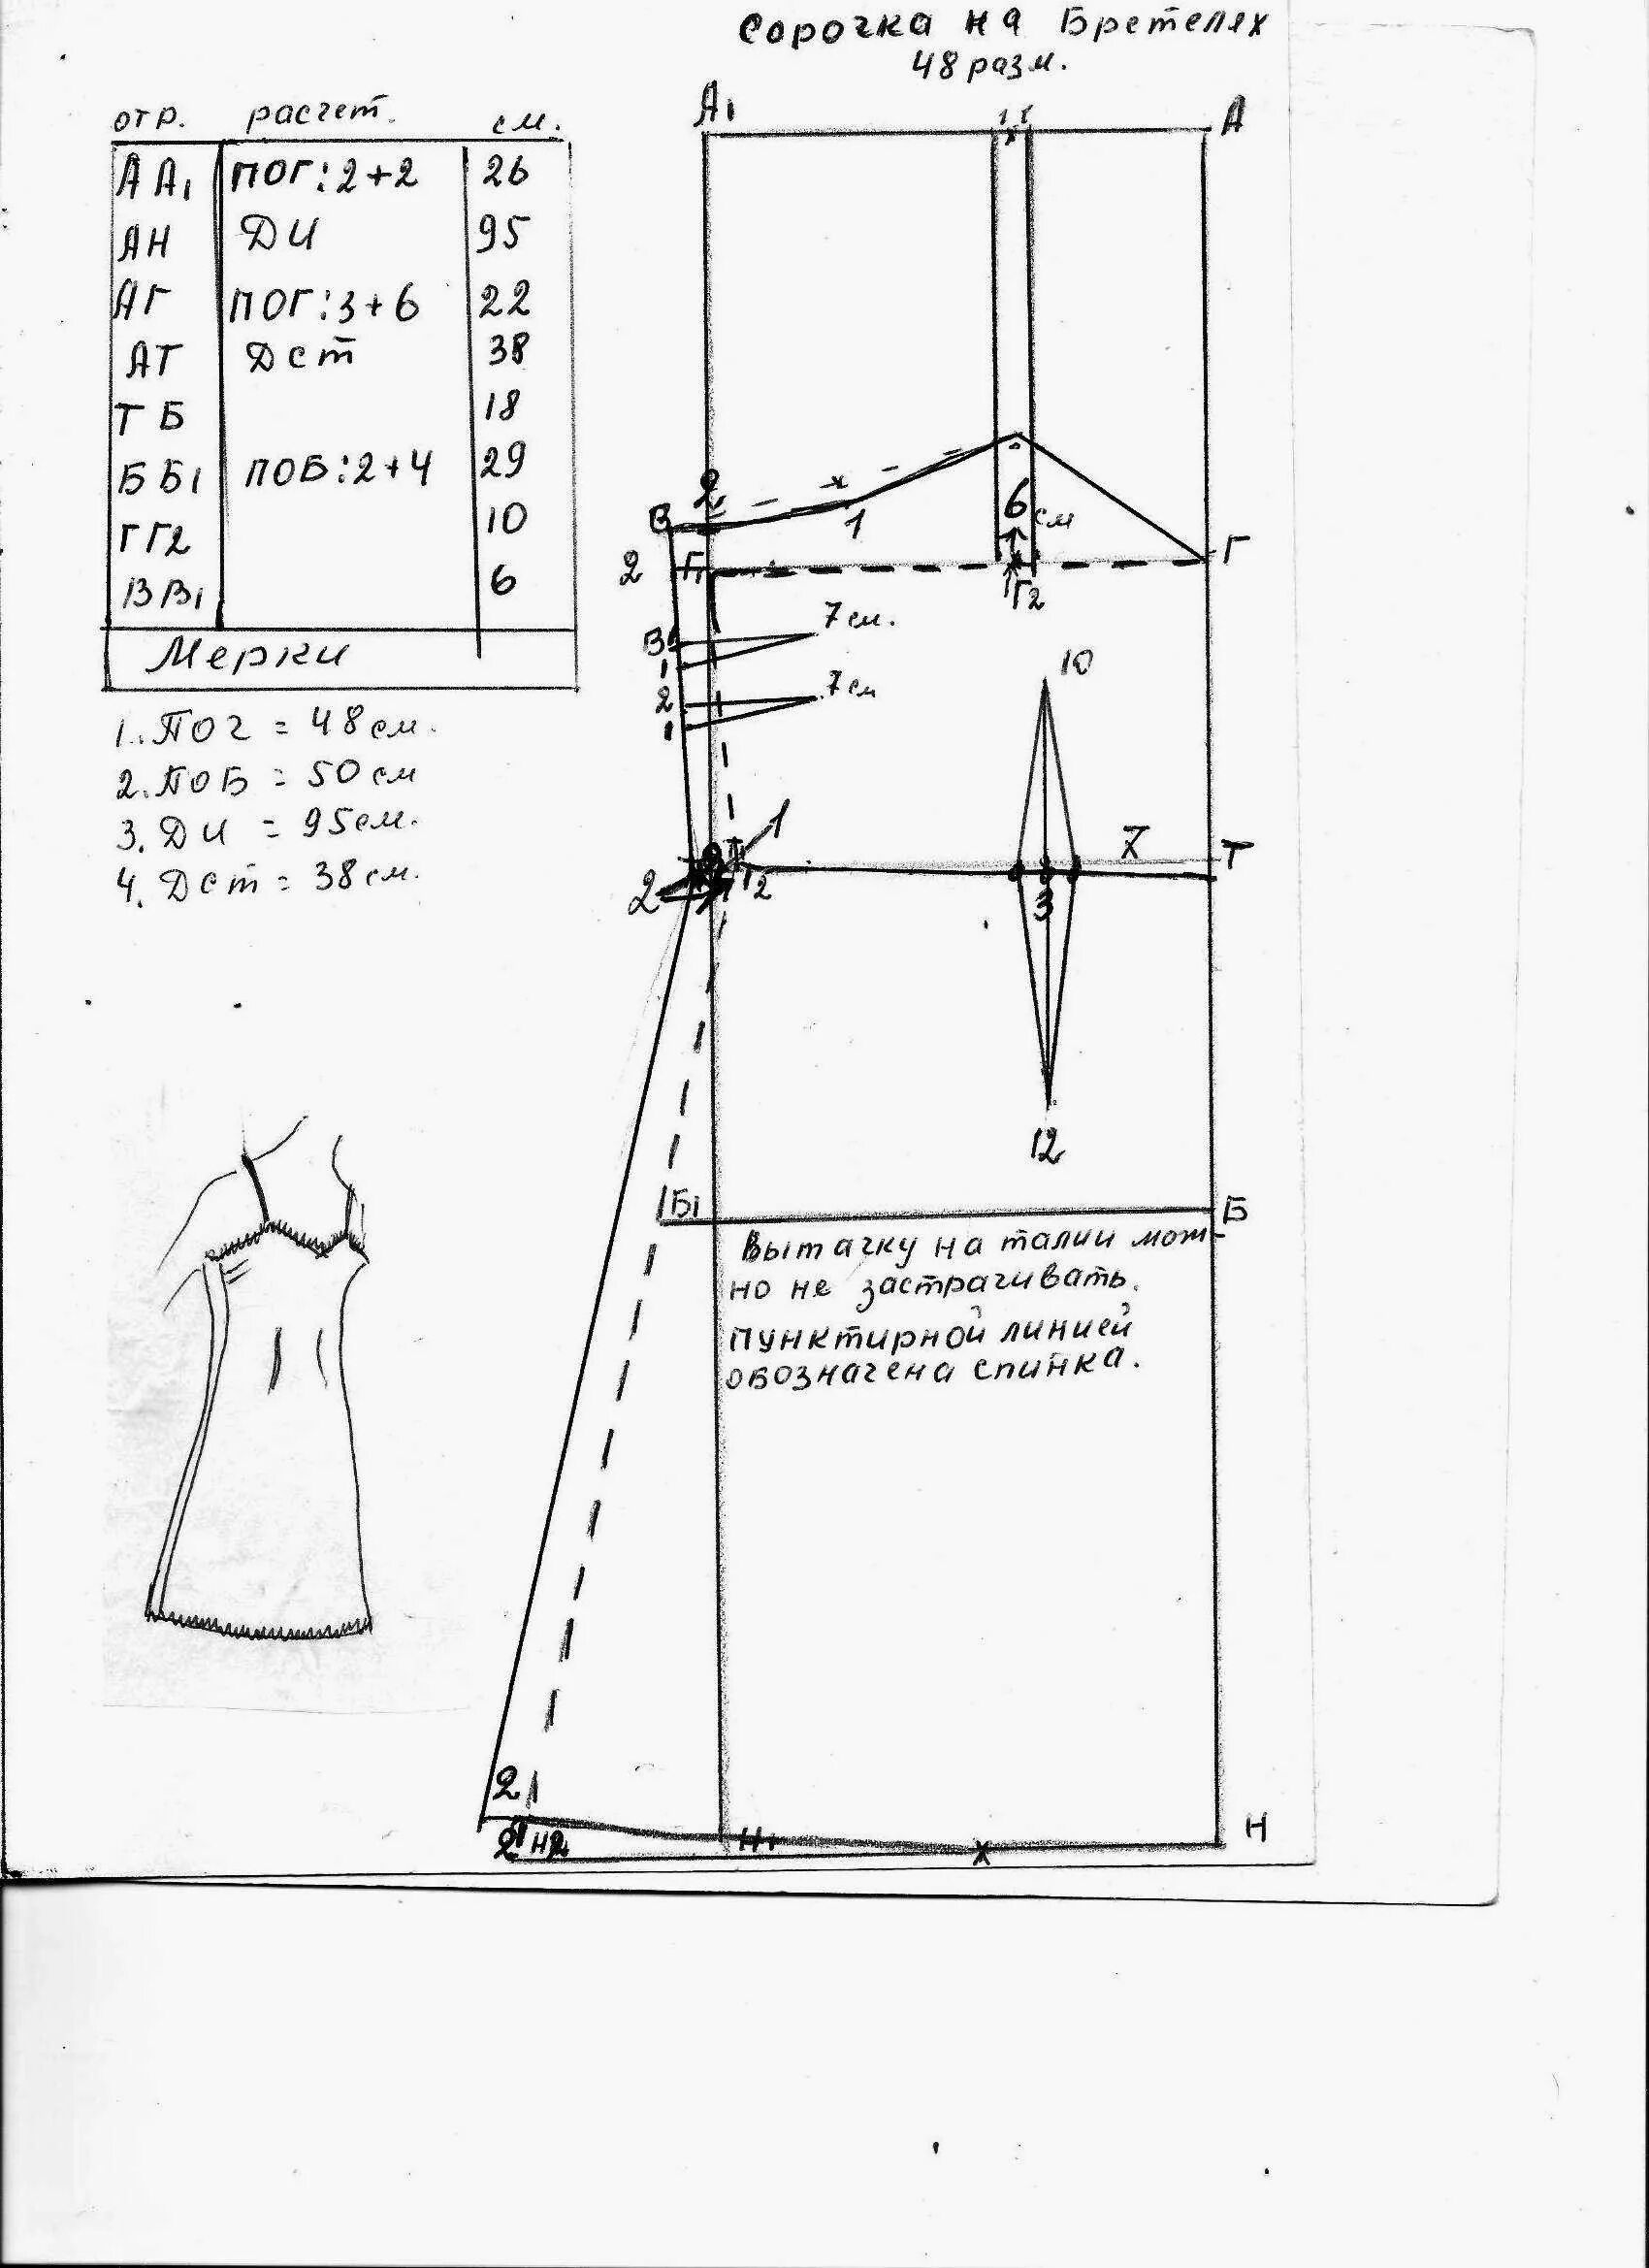 Сорочка на Бретелях
48 разм.
отр. расчет. см.
АА1 ПОГ:2+2 26
АН ДИ 95
АГ ПОГ:3+6 22
АТ Дст 38
ТБ 18
ББ1 ПОБ:2+4 29
ГГ2 10
ВВ1 6
Мерки
1. ПОг = 48 см.
2. ПОБ = 50 см
3. ДИ = 95 см.
4. Дст = 38 см.
А1 А
2
В 1 6 см
2 Г1 Г
Г2
В1 7 см.
1
2 7 см
1
10
1 7 Т
2 Т2 3
12
Б1 Б
Вытачку на талии мож-
но не застрачивать.
Пунктирной линией
обозначена спинка.
2
2 Н2 Н1 Х Н